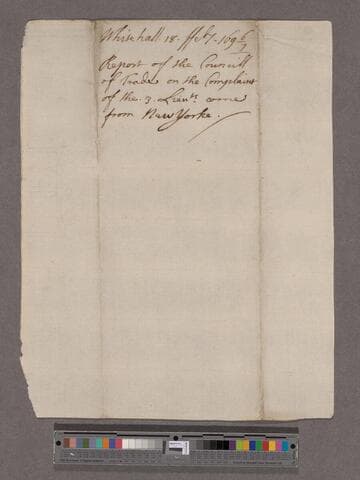 Whitehall 18. ffeb̃. 169 6/7
Report of the Councill
of Trade on the Complaint
of the 3. Lieuts. come
from New Yorke.